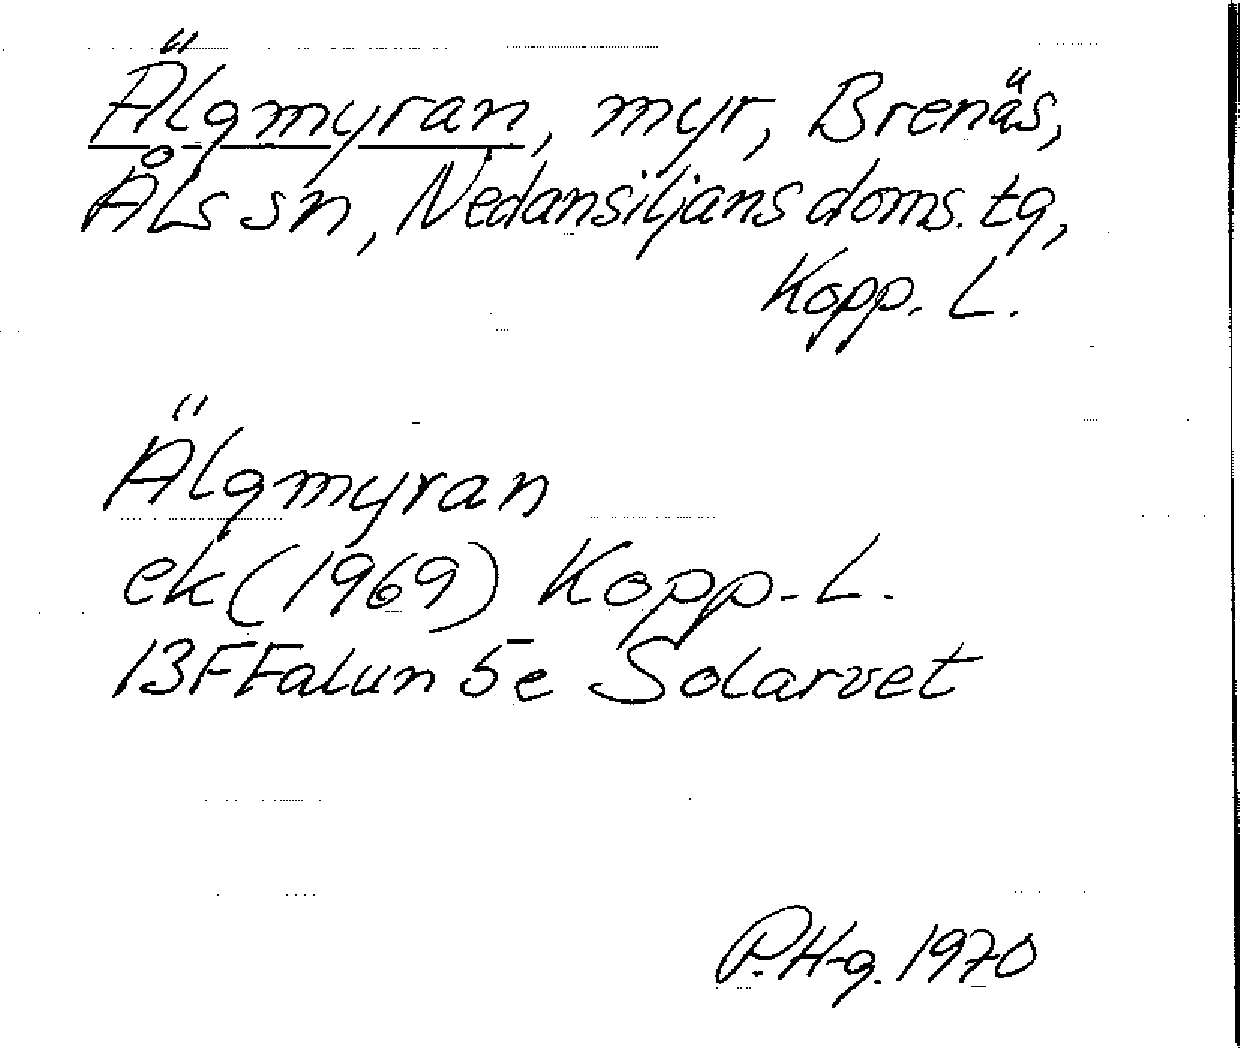 Älgmyran, myr, Brenäs,
Åls sn, Nedansiljans doms. tg,
Kopp. L.
Älgmyran
ek (1969) Kopp. L.
13F Falun 5e Solarvet
P.H-g. 1970